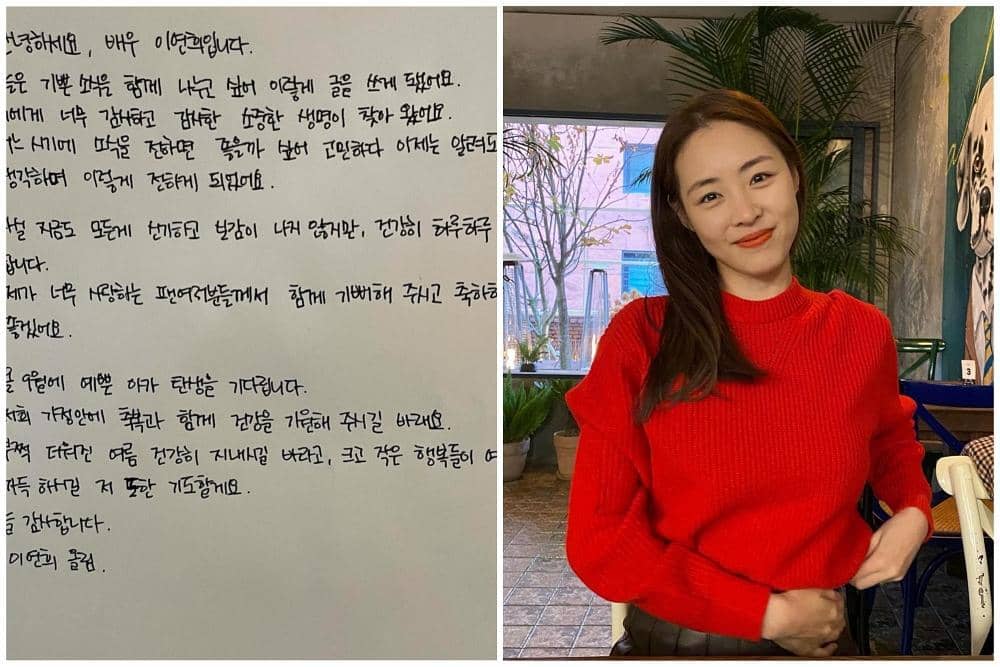 안녕하세요, 배우 이연희입니다.
들은 기쁜 소식을 함께 나누고 싶어 이렇게 글을 쓰게 됐어요.
에게 너무 감사하고 감사한 소중한 생명이 찾아 왔어요.
느 시기에 소식을 전하면 좋을까 싶어 고민하다 이제는 알려도
생각하며 이렇게 전하게 되었어요.
지금도 모든게 신기하고 실감이 나지 않지만, 건강히 하루하루
합니다.
제가 너무 사랑하는 팬여러분들께서 함께 기뻐해 주시고 축하해
좋겠어요.
올 9월에 예쁜 아가 탄생을 기다립니다.
저희 가정안에 축복과 함께 건강을 기원해 주시길 바래요.
부쩍 더워진 여름 건강히 지내시길 바라고, 크고 작은 행복들이 여
가득 하시길 저 또한 기도할게요.
들 감사합니다.
이연희 올림.
3